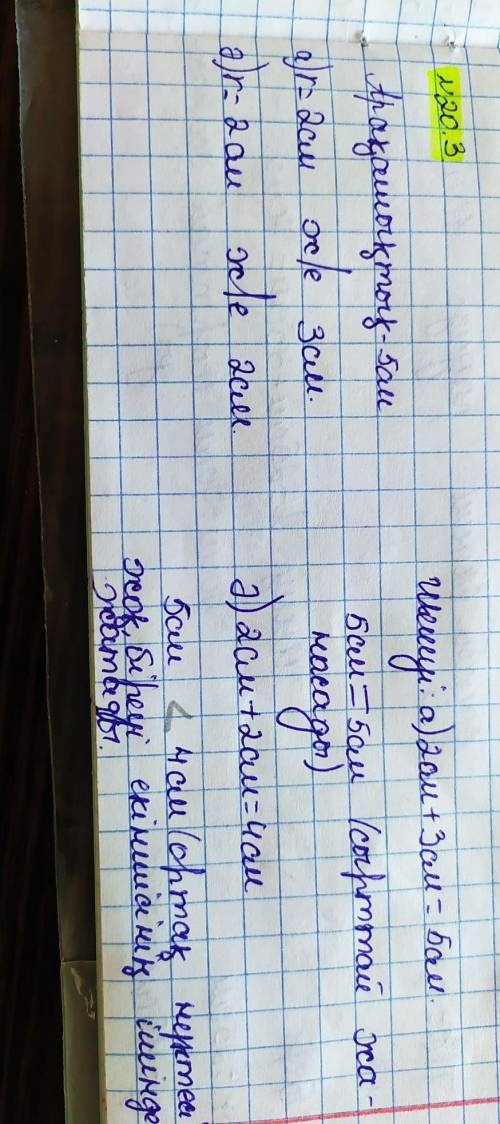 №20.3
Арақашықтық-5см
а) r=2см ж/е 3см.
ә) r=2см ж/е 2см.
Шешуі: а) 2см+3см=5см.
5см=5см (сырттай жа-
насады)
ә) 2см+2см=4см
5см < 4см (ортақ нүктесі
жоқ, біреуі екіншісінің ішінде
жатады.